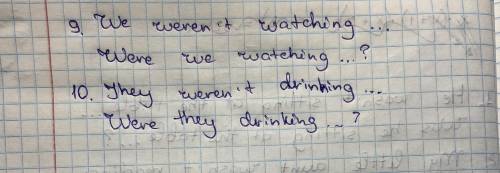 9. We weren't watching ...
Were we watching ...?
10. They weren't drinking ...
Were they drinking ...?